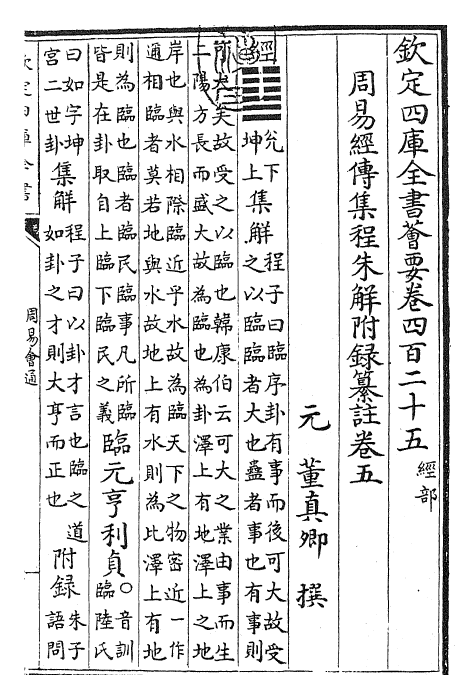 欽定四庫全書薈要卷四百二十五 經部
周易經傳集程朱解附録纂註卷五
元 董真卿 撰
經 ䷒ 兌下
坤上
集解
程子曰臨序卦有事而後可大故受
之以臨臨者大也蠱者事也有事則
可大矣故受之以臨也韓康伯云可大之業由事而生
二陽方長而盛大故為臨也為卦澤上有地澤上之地
岸也與水相際臨近乎水故為臨天下之物密近一作
通相臨者莫若地與水故地上有水則為比澤上有地
則為臨也臨者臨民臨事凡所臨
皆是在卦取自上臨下臨民之義
臨元亨利貞
○音訓
臨陸氏
曰如字坤
宮二世卦
集解
程子曰以卦才言也臨之道
如卦之才則大亨而正也
附録
朱子
語問
欽定四庫全書
周易會通